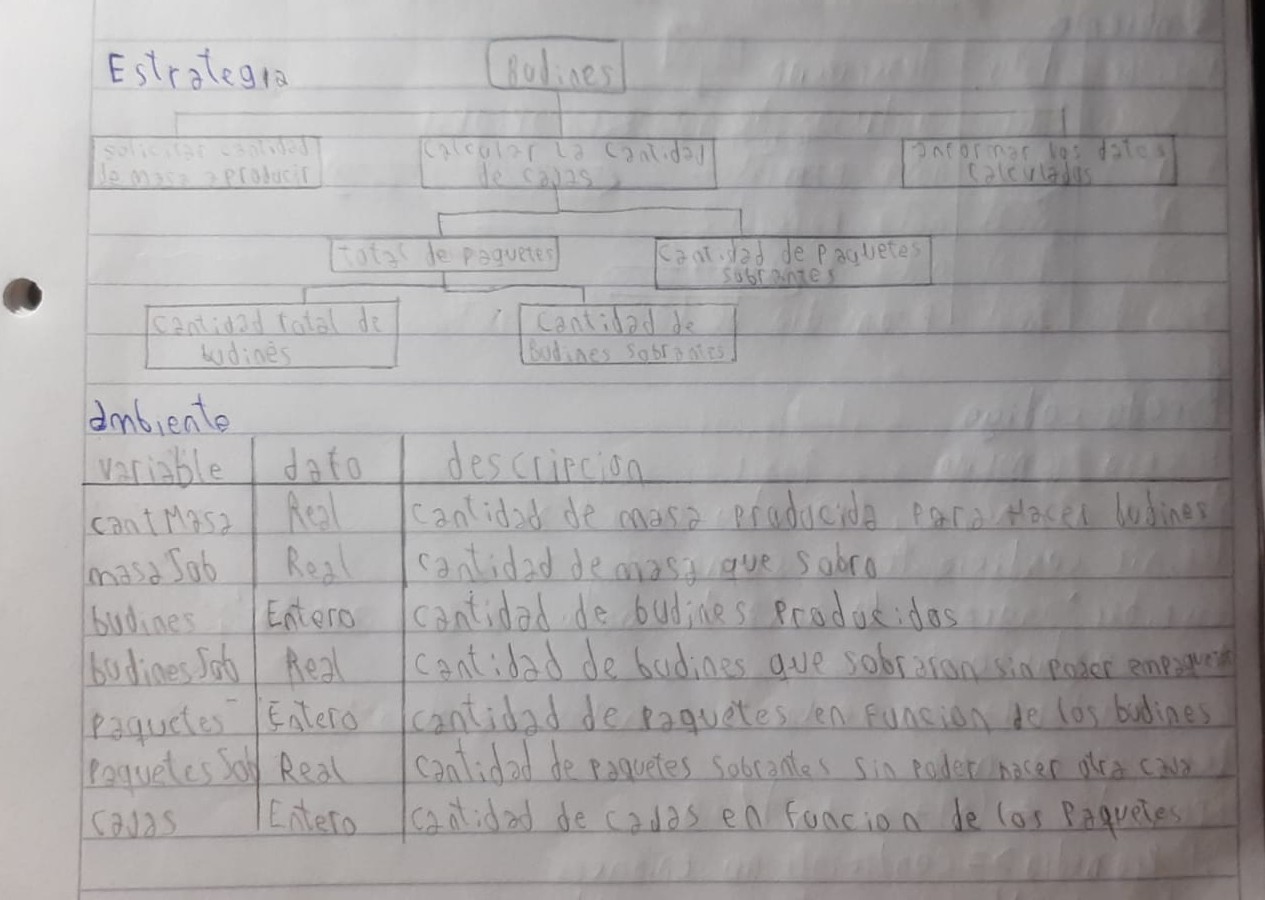 Estrategia
Budines
solicitar cantidad
de masa a producir
calcular la cantidad
de cajas
informar los datos
calculados
total de paquetes
cantidad de paquetes
sobrantes
cantidad total de
budines
cantidad de
budines sobrantes
ambiente
variable dato descripcion
cantMasa Real cantidad de masa producida para Hacer budines
masaSob Real cantidad de masa que sobro
budines Entero cantidad de budines producidos
budinesSob Real cantidad de budines que sobraron sin poder
paquetes Entero cantidad de paquetes en funcion de los budines
paquetesSob Real cantidad de paquetes sobrantes sin poder hacer otra caja
cajas Entero cantidad de cajas en funcion de los paquetes